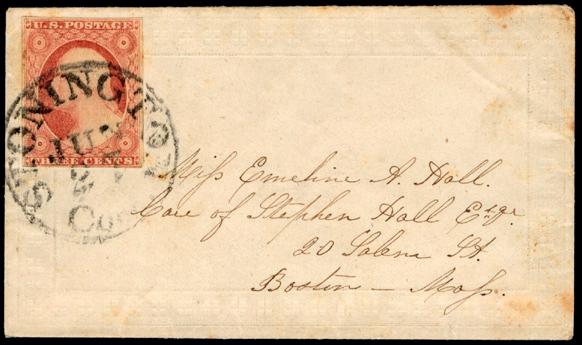 U.S. POSTAGE
THREE CENTS
STONINGTON
JUN
Miss Emeline A. Hall.
Care of Stephen Hall Esqr.
20 Salem St.
Boston — Mass.